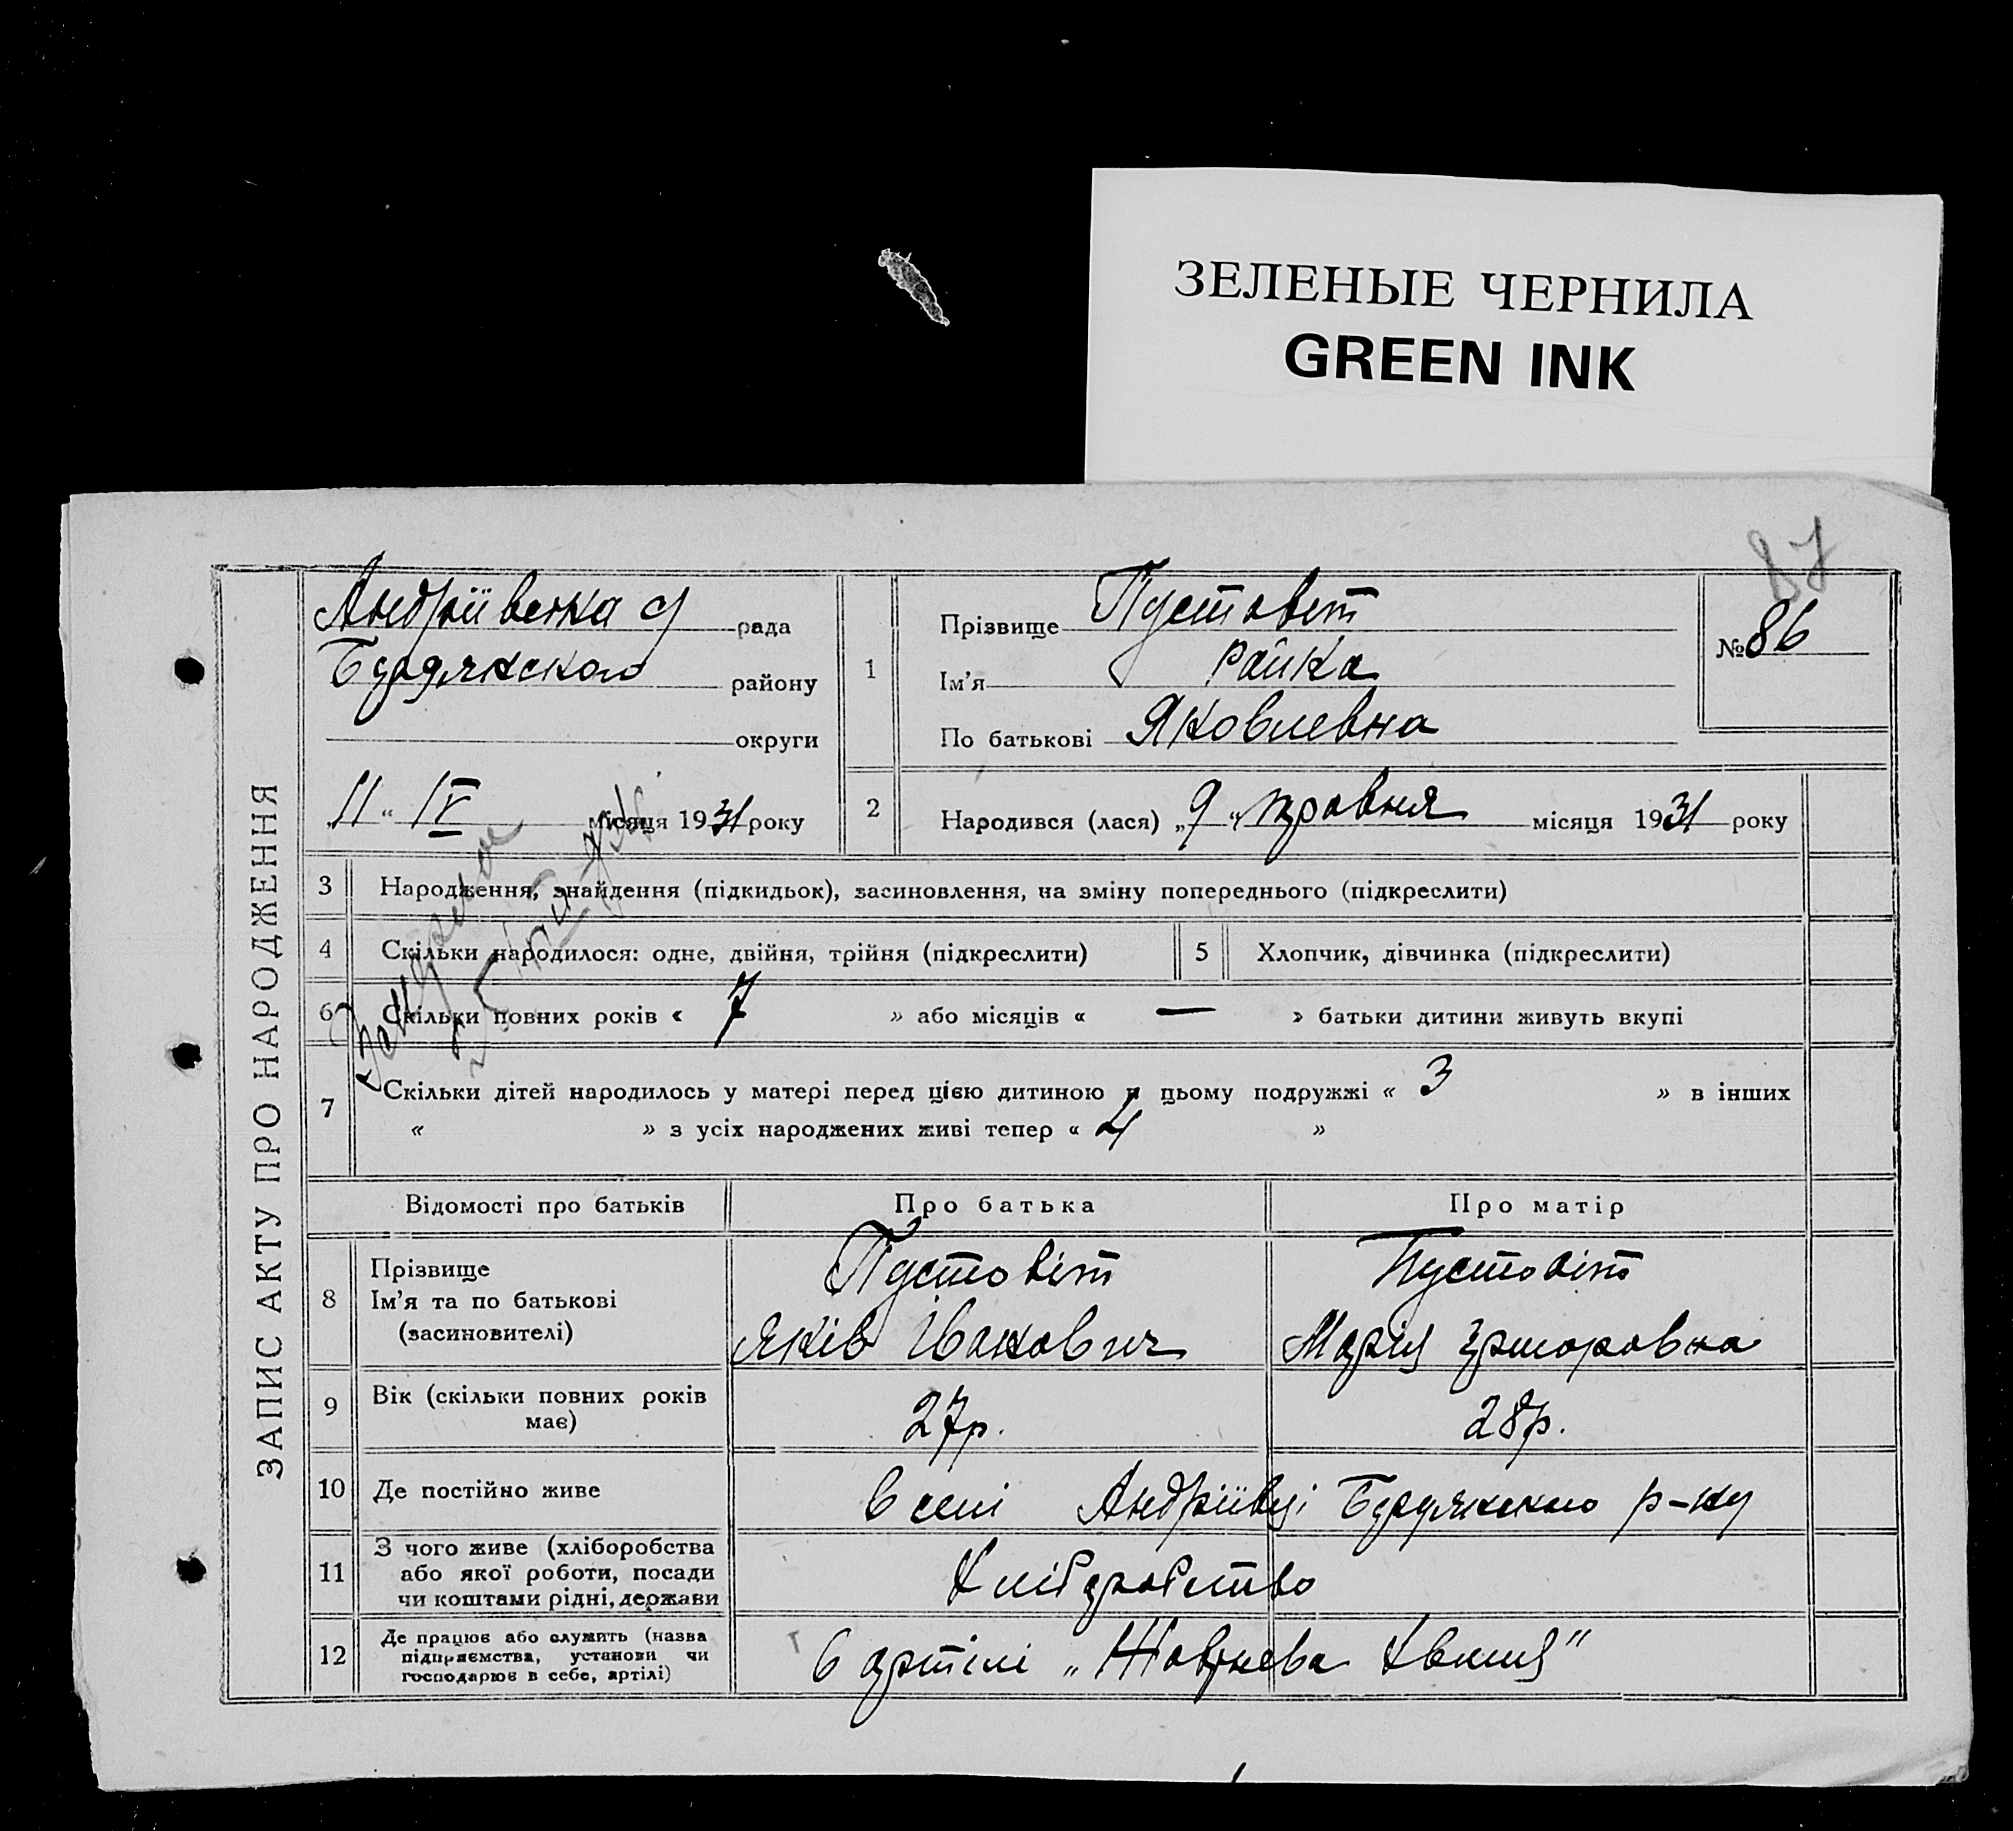 ЗЕЛЕНЫЕ ЧЕРНИЛА
GREEN INK
87
ЗАПИС АКТУ ПРО НАРОДЖЕННЯ
Андріївська с/ рада
Бердянського району
округи
"11" IV місяця 1931 року
1
Прізвище Пустовіт
Ім'я Райка
По батькові Яковлевна
№ 86
2 Народився (лася) „9" травня місяця 1931 року
3 Народження, знайдення (підкидьок), засиновлення, на зміну попереднього (підкреслити)
4 Скільки народилося: одне, двійня, трійня (підкреслити)
5 Хлопчик, дівчинка (підкреслити)
6 Скільки повних років « 7 » або місяців « — » батьки дитини живуть вкупі
7 Скільки дітей народилось у матері перед цією дитиною в цьому подружжі « 3 » в інших
« » з усіх народжених живі тепер « 4 »
Відомості про батьків
Про батька
Про матір
8 Прізвище
Ім'я та по батькові
(засиновителі)
Пустовіт
Яків Іванович
Пустовіт
Марія
9 Вік (скільки повних років
має)
27р.
28р.
10 Де постійно живе
в селі Андріївці Бердянського р-ну
11 З чого живе (хліборобства
або якої роботи, посади
чи коштами рідні, держави
12 Де працює або служить (назва
підприємства, установи чи
господарює в себе, артілі)
в артілі „Жовтнева Хвиля"